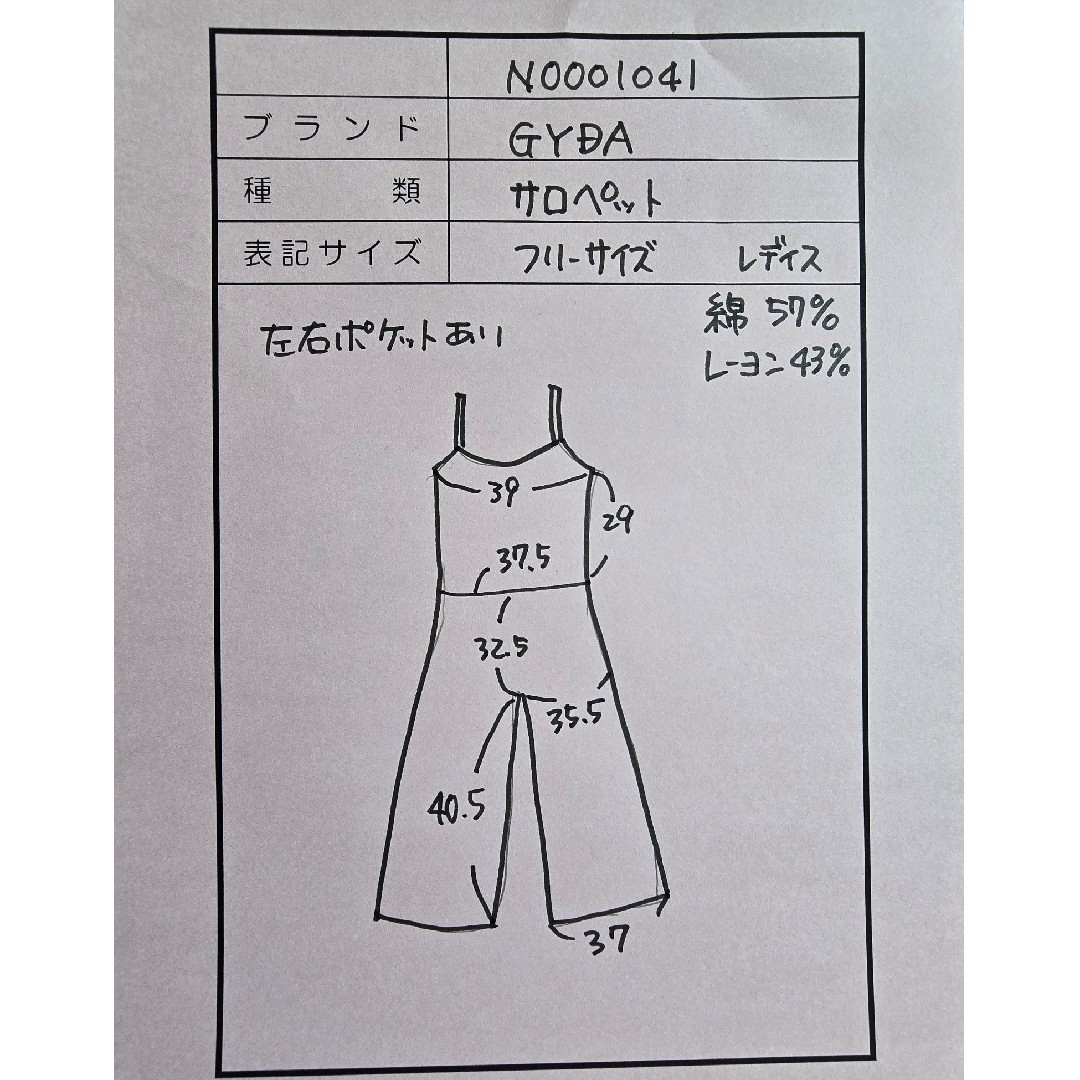 N0001041
ブランド GYDA
種類 サロペット
表記サイズ フリーサイズ レディス
綿 57%
左右ポケットあり
レーヨン 43%
39
29
37.5
32.5
35.5
40.5
37